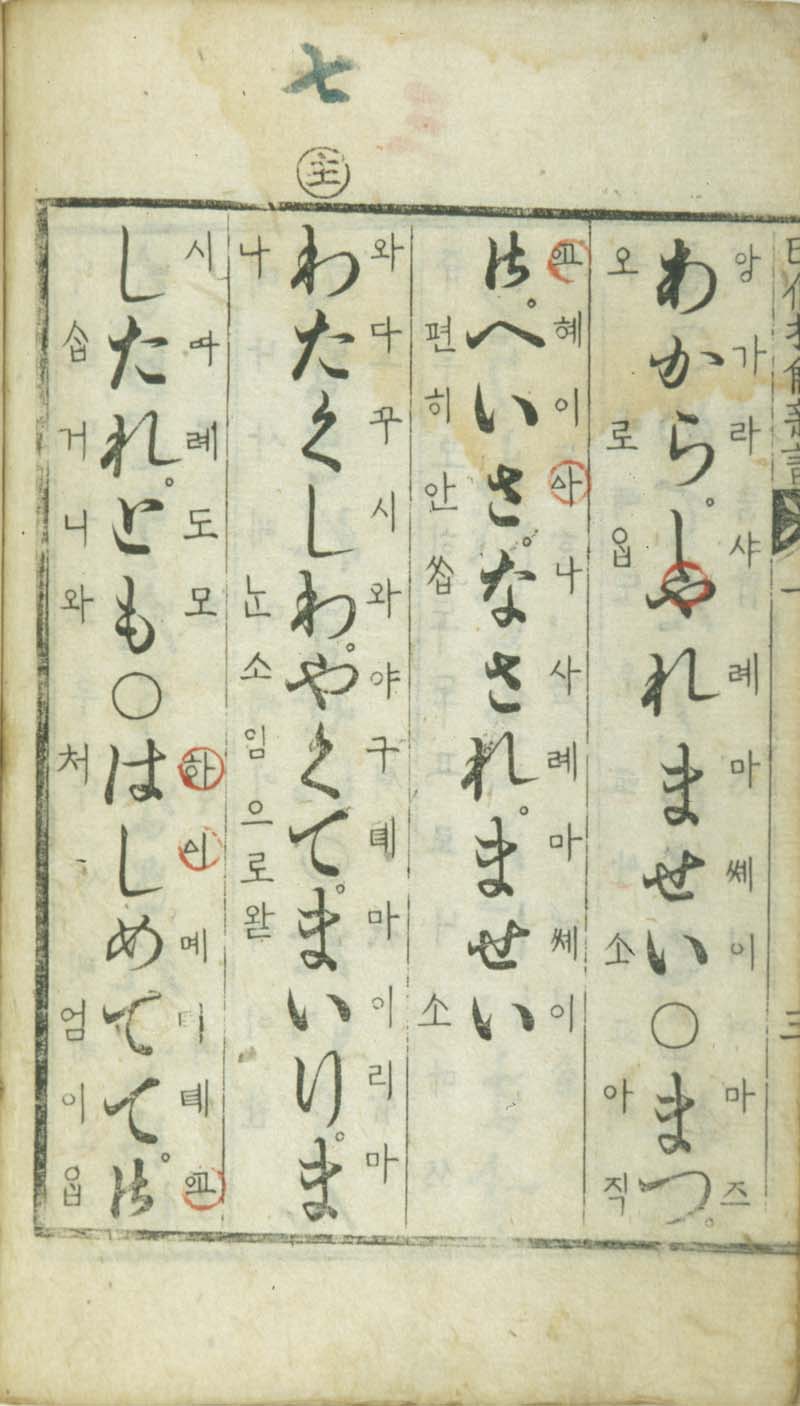 七
主
앙가라샤례마쎄이 마즈
あから。しやれませい〇まつ。
오로옵소 아직
혜이사나사례마쎄이
御。へいさ。なされ。ませい
편히안소
와다꾸시와야구톄마이리마
わたくしわ。やくて。まいり。ま
나 소임으로왇
시따례도모 하 메디톄
したれ。とも〇はしめてて。御
거니와 처엄이옵